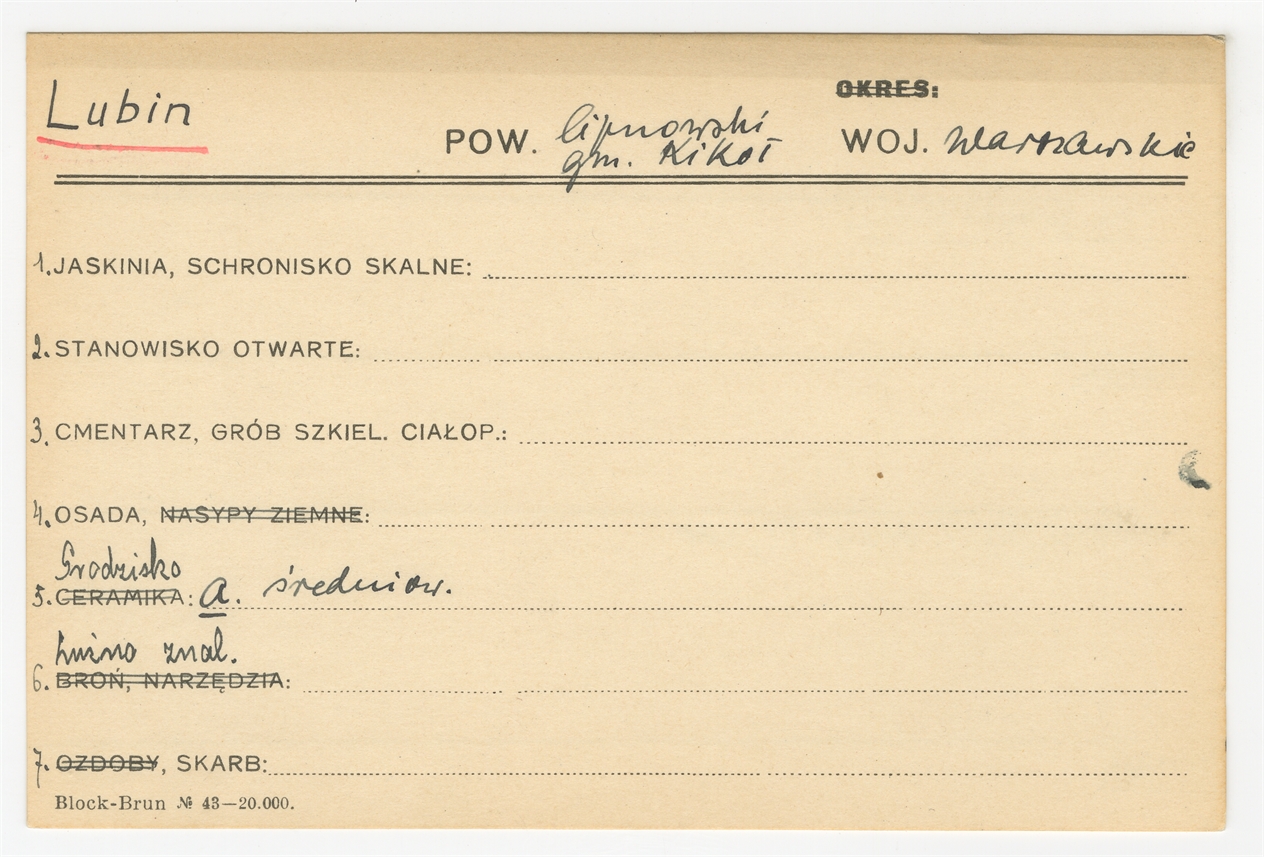 OKRES:
Lubin
POW. lipnowski WOJ. Warszawskie
gm. Kikoł
1. JASKINIA, SCHRONISKO SKALNE:
2. STANOWISKO OTWARTE:
3. CMENTARZ, GRÓB SZKIEL. CIAŁOP.:
4. OSADA, NASYPY ZIEMNE:
Grodzisko
5. CERAMIKA: a. średniow.
Luźno znal.
6. BROŃ, NARZĘDZIA:
7. OZDOBY, SKARB:
Block-Brun № 43—20.000.